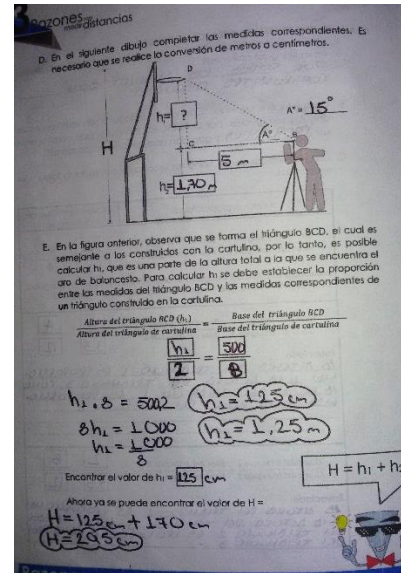 3
Razones para
medir distancias
D. En el siguiente dibujo completar las medidas correspondientes. Es
necesario que se realice la conversión de metros a centímetros.
D
h= ?
A°= 15°
H
A°
C
B
5 m
h= 1,70 m
E. En la figura anterior, observa que se forma el triángulo BCD, el cual es
semejante a los construidos con la cartulina, por lo tanto, es posible
calcular h₁, que es una parte de la altura total a la que se encuentra el
aro de baloncesto. Para calcular h₁ se debe establecer la proporción
entre las medidas del triángulo BCD y las medidas correspondientes de
un triángulo construido en la cartulina.
Altura del triángulo BCD (h₁) = Base del triángulo BCD
Altura del triángulo de cartulina Base del triángulo de cartulina
h₁ = 500
2 8
h₁ . 8 = 500.2 h₁ = 125 cm
8h₁ = 1000 h₁ = 1,25 m
h₁ = 1000
8
Encontrar el valor de h₁ = 125 cm
H = h₁ + h
Ahora ya se puede encontrar el valor de H =
H = 125 cm + 170 cm
H = 295 cm